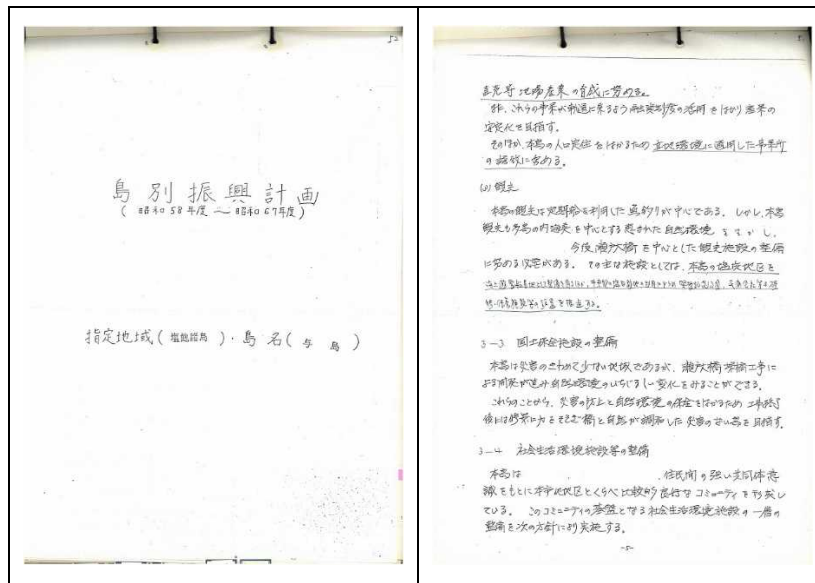 52
島別振興計画
(昭和58年度～昭和67年度)
指定地域(塩飽諸島)・島名(与島)
直売等地場産業の育成に努める。
又、これらの事業が軌道に来るよう融資制度の活用をはかり産業の
安定化を目指す。
そのほか、本島の人口定住をはかるため立地環境に適用した事業所
の誘致に努める。
(2) 観光
本島の観光は定期船を利用した魚釣りが中心である。しかし、本島
観光も多島の内海美を中心とする恵まれた自然環境を
今後、瀬戸大橋を中心とした観光施設の整備
に努める必要がある。その主な施設としては、本島の塩浜地区を
3-3 国土保全施設の整備
本島は災害のきわめて少ない地域であるが、瀬戸大橋架橋工事に
よる開発が進み自然環境のいちじるしい変化をみることができる。
これらのことから、災害の防止と自然環境の保全をはかるため工事終了
後には修景に力をそそぎ橋と自然が調和した災害のない島を目指す。
3-4 社会生活環境施設等の整備
本島は 住民間の強い共同体意
識をもとに本字地地区とくらべ比較的良好なコミュニティを形成し
ている。このコミュニティの基盤となる社会生活環境施設の一層の
整備を次の方針により実施する。
-5-